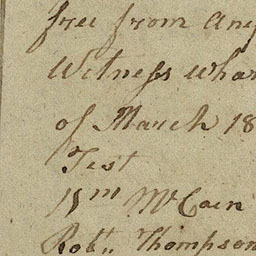 free from any
Witness whar
of March 18
Test
Wm McCain
Robt,, Thompson